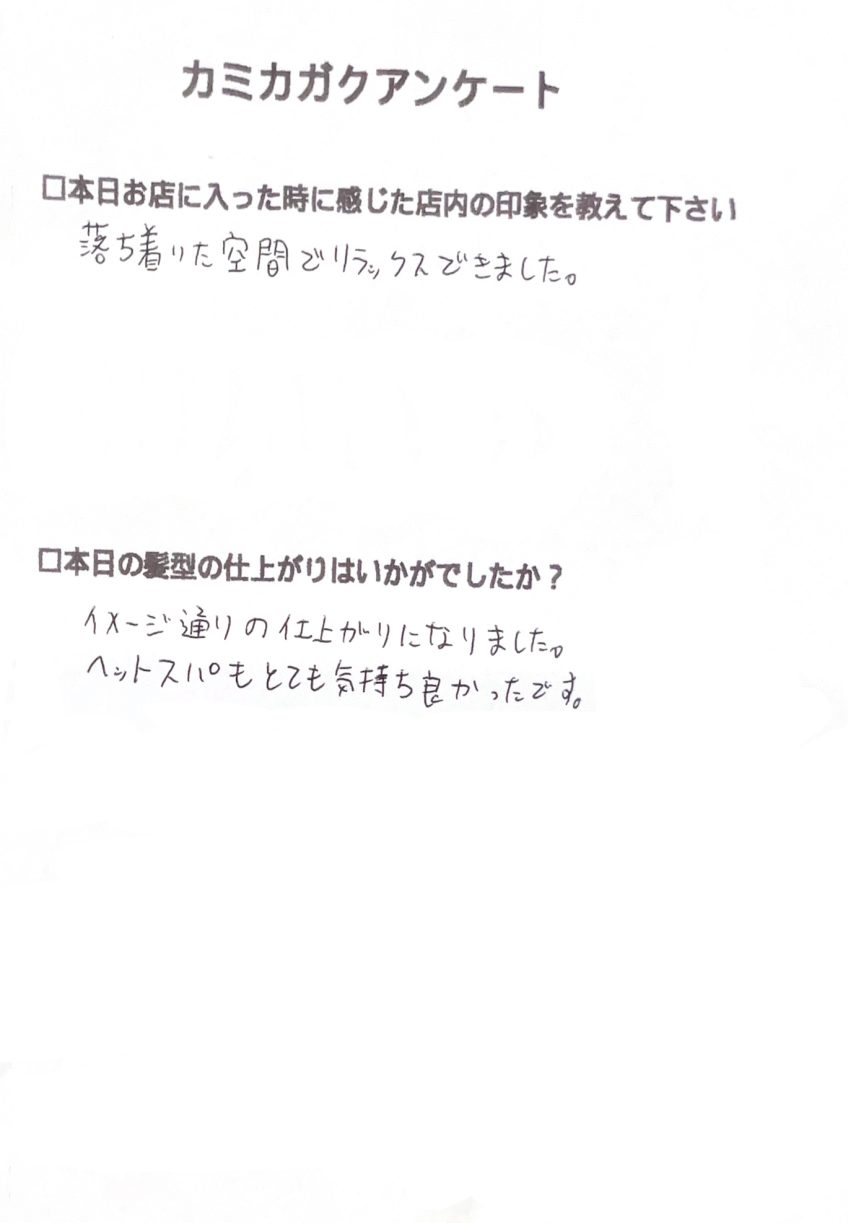 カミカガクアンケート
□本日お店に入った時に感じた店内の印象を教えて下さい
落ち着いた空間でリラックスできました。
□本日の髪型の仕上がりはいかがでしたか？
イメージ通りの仕上がりになりました。
ヘットスパもとても気持ち良かったです。